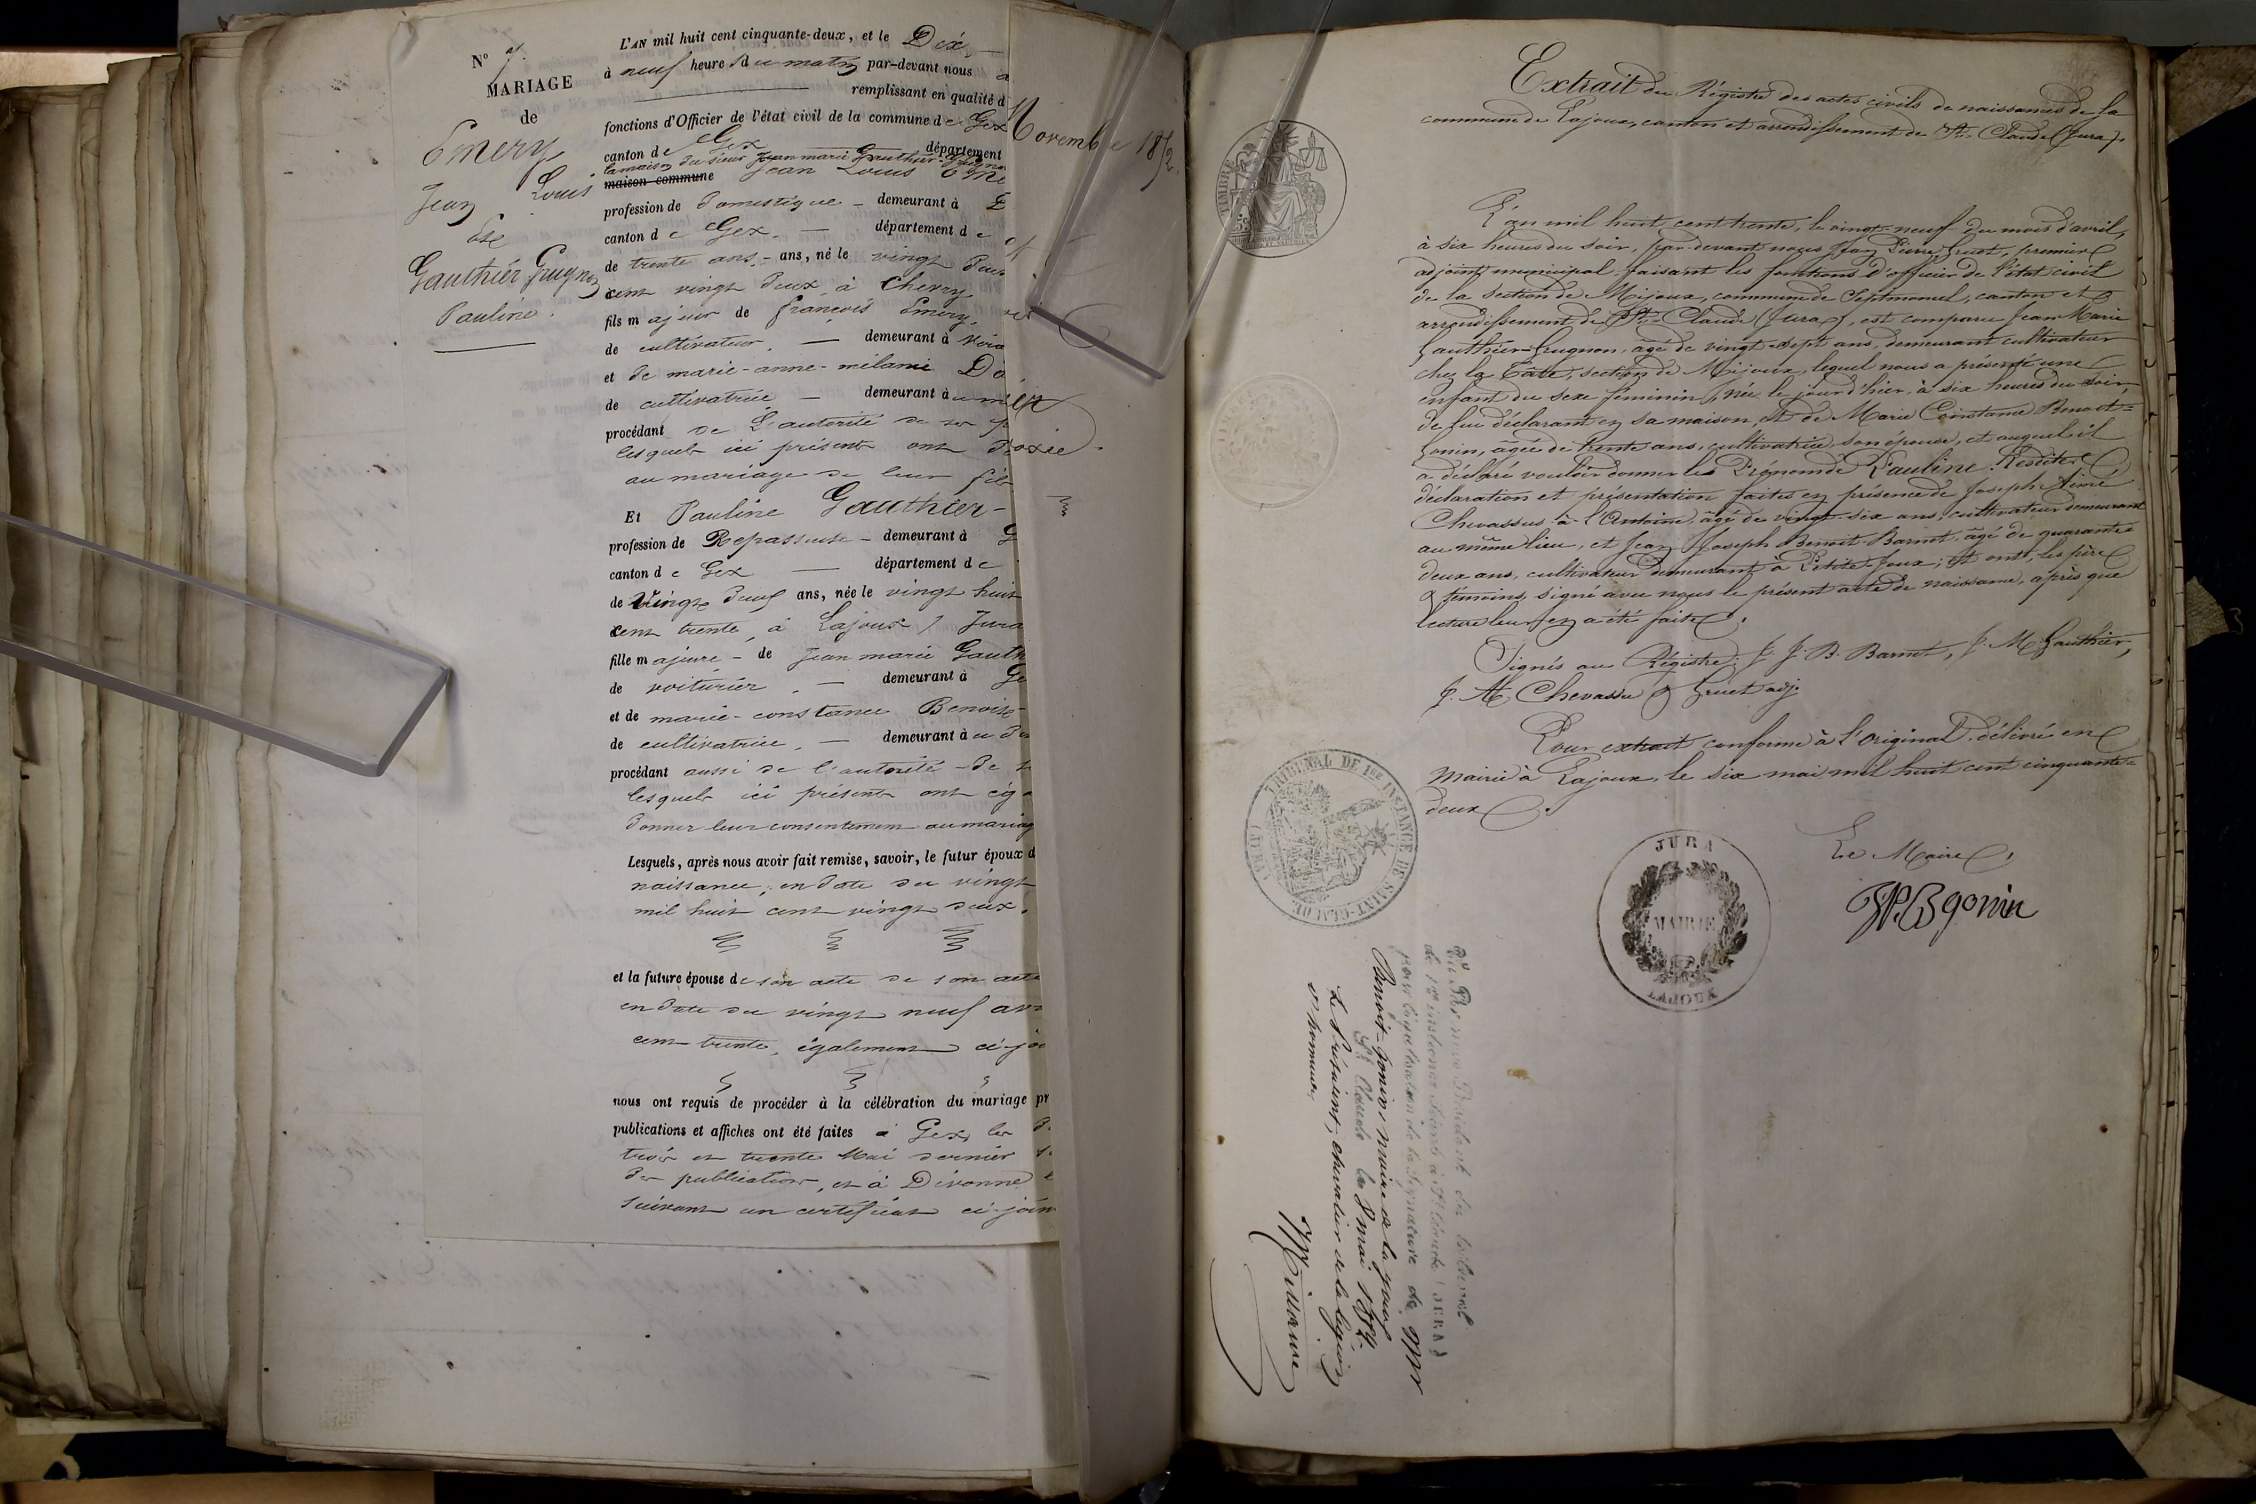 N° 7.
MARIAGE
de
Emery
Jean Louis
Et
Gauthier Guignon
Pauline.
L'AN mil huit cent cinquante-deux, et le Dix
à neuf heures du matin par-devant nous
remplissant en qualité d
fonctions d'Officier de l'état civil de la commune de Gex
canton de Gex département
la maison du sieur Jean marie Gauthier-Guignon
maison commune Jean Louis Eme
profession de Domestique demeurant à
canton de Gex. département de
de trente ans, ans, né le vingt deux
cent vingt deux à Chevry
fils majeur de françois Emery,
de cultivateur. demeurant à
et de marie-anne-mélanie
de cultivatrice demeurant à
procédant de L'autorité de
lesquels ici présents ont
au mariage de leur fils
Et Pauline Gauthier-
profession de Repasseuse demeurant à G
canton de Gex département de
de Vingt deux ans, née le vingt huit
cent trente, à Lajoux / Jura
fille majeure de Jean marie Gauth
de voiturier. demeurant à Ge
et de marie-constance Benoit-
de cultivatrice. demeurant à
procédant aussi de l'autorité de
lesquels ici présents ont
donner leur consentement au mariag
Lesquels, après nous avoir fait remise, savoir, le futur époux d
naissance, en date du vingt
mil huit cent vingt deux.
et la future épouse de son acte de son acte
en date du vingt neuf avr
cent trente, également ci-joi
nous ont requis de procéder à la célébration du mariage pr
publications et affiches ont été faites à Gex, les
trois et trente Mai dernier
de publication, et à Divonne
suivant un certificat ci-join
Novembre 1852.
Extrait du Régistre des actes civils de naissances de la
commune de Lajoux, canton et arrondissement de St. Claude (Jura).
L'an mil huit cent trente, le vingt-neuf du mois d'avril,
à six heures du soir, par-devant nous Jean Pierre Gruet, premier
adjoint municipal faisant les fonctions d'officier de l'état civil
de la section de Mijoux, commune de Septmoncel, canton et
arrondissement de St. Claude (Jura), est comparu Jean Marie
Gauthier-Guignon, âgé de vingt-sept ans, demeurant cultivateur
chez la Tate, section de Mijoux, lequel nous a présenté une
enfant du sexe féminin, née le jourd'hier, à six heures du soir,
de lui déclarant en sa maison, et de Marie Constance Benoit-
Gonin, âgée de trente ans, cultivatrice, son épouse, et auquel il
a déclaré vouloir donner les Prénoms de Pauline. Lesdites
déclaration et présentation faites en présence de Joseph Aimé
Chevassus-à-l'Antoine, âgé de vingt-six ans, cultivateur demeurant
au même lieu, et Jean Joseph Benoit-Barnet, âgé de quarante
deux ans, cultivateur demeurant à ; et ont, les père
& témoins, signé avec nous le présent acte de naissance, après que
lecture leur en a été faite.
Signés au Régistre: J. J. B. Barnet, J. M. Gauthier,
J. A. Chevassu & Gruet adj.
Pour extrait conforme à l'original délivré en
Mairie à Lajoux, le six mai mil huit cent cinquante-
deux.
Le Maire,
JPBgonin
TIMBRE
TRIBUNAL DE 1RE INSTANCE DE SAINT-CLAUDE
(JURA)
JURA
MAIRIE
LAJOUX
Vu Par nous Président du tribunal
de 1re instance séant à St Claude (JURA)
pour légalisation de la Signature de Mr
Benoit-Gonin, maire de la joux
St Claude le 8 mai 1852
Le Président, chevalier de la légion
d'honneur.